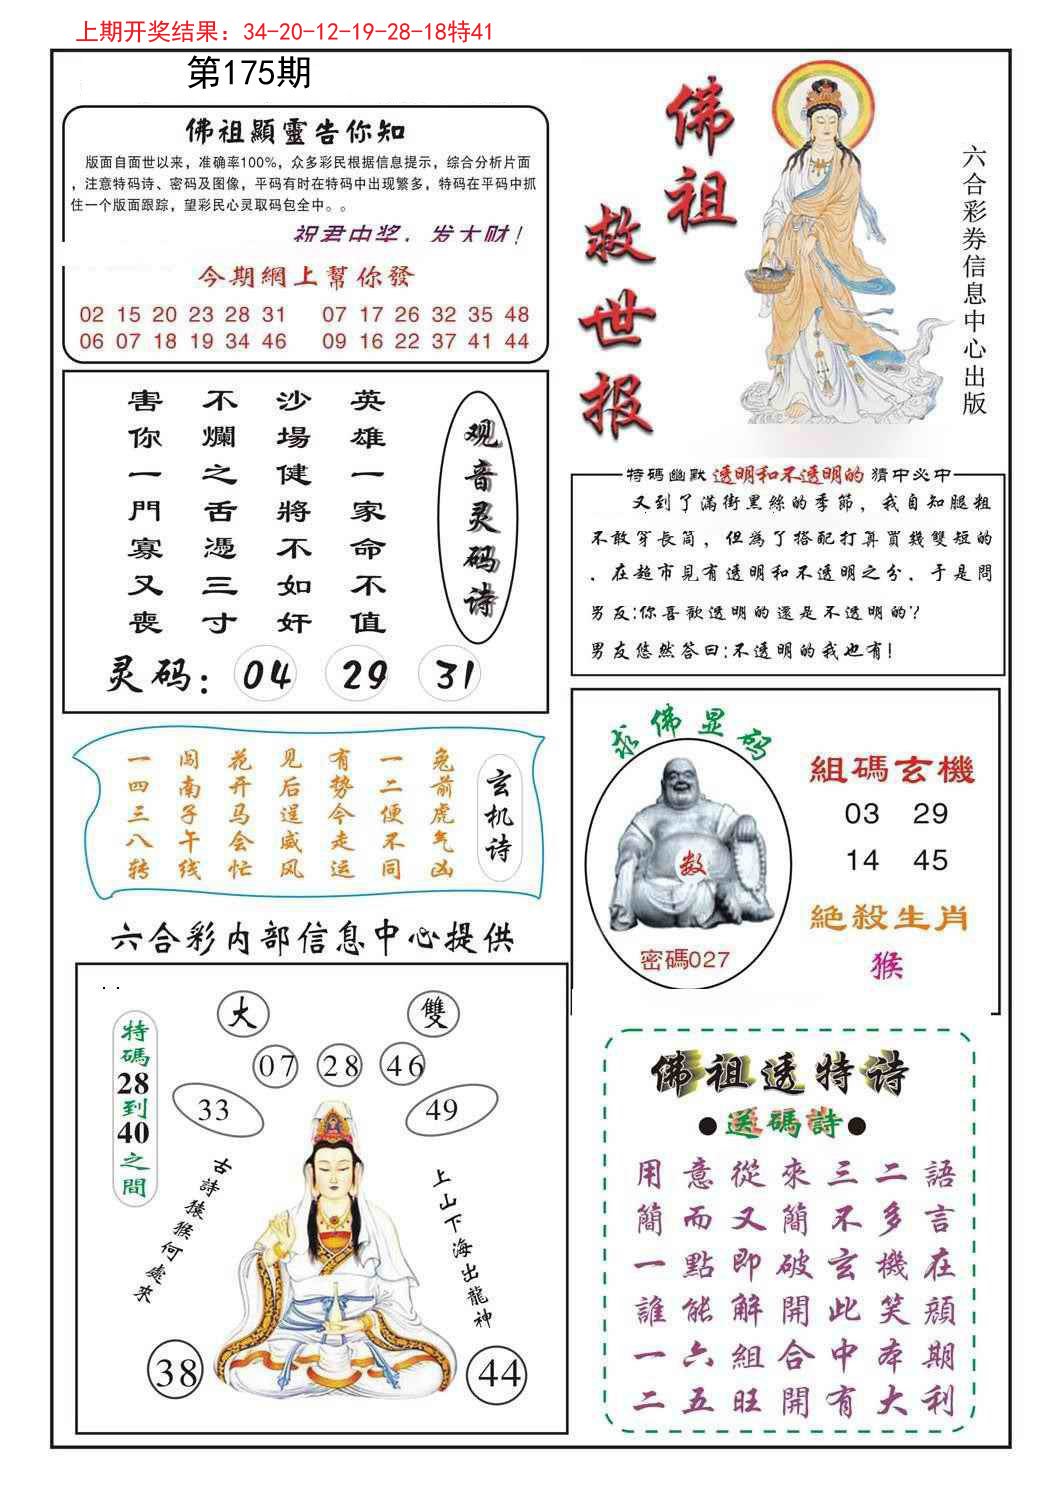 上期开奖结果：34-20-12-19-28-18特41
第175期
佛祖顯靈告你知
版面自面世以来，准确率100%，众多彩民根据信息提示，综合分析片面
，注意特码诗、密码及图像，平码有时在特码中出现繁多，特码在平码中抓
住一个版面跟踪，望彩民心灵取码包全中。。
祝君中奖，发大财！
今期網上幫你發
02 15 20 23 28 31 07 17 26 32 35 48
06 07 18 19 34 46 09 16 22 37 41 44
佛祖
救世报
六合彩券信息中心出版
观音灵码诗
英雄一家命不值
沙場健將不如奸
不爛之舌憑三寸
害你一門寡又喪
灵码：04 29 31
特碼幽默 透明和不透明的 猜中必中
又到了滿街黑絲的季節，我自知腿粗
不敢穿長筒，但為了搭配打算買幾雙短的
．在超市見有透明和不透明之分．于是問
男友:你喜歡透明的還是不透明的?
男友悠然答曰:不透明的我也有!
玄机诗
兔前虎气凶
一二便不同
有势今走运
见后逞威风
花开马会忙
闯南子午线
一四三八转
求佛显码
数
密碼027
組碼玄機
03 29
14 45
絕殺生肖
猴
六合彩内部信息中心提供
特碼28到40之間
大
雙
07 28 46
33
49
古詩猿猴何處來
上山下海出龍神
38
44
佛祖透特诗
●送碼詩●
用意從來三二語
簡而又簡不多言
一點即破玄機在
誰能解開此笑顔
一六組合中本期
二五旺開有大利